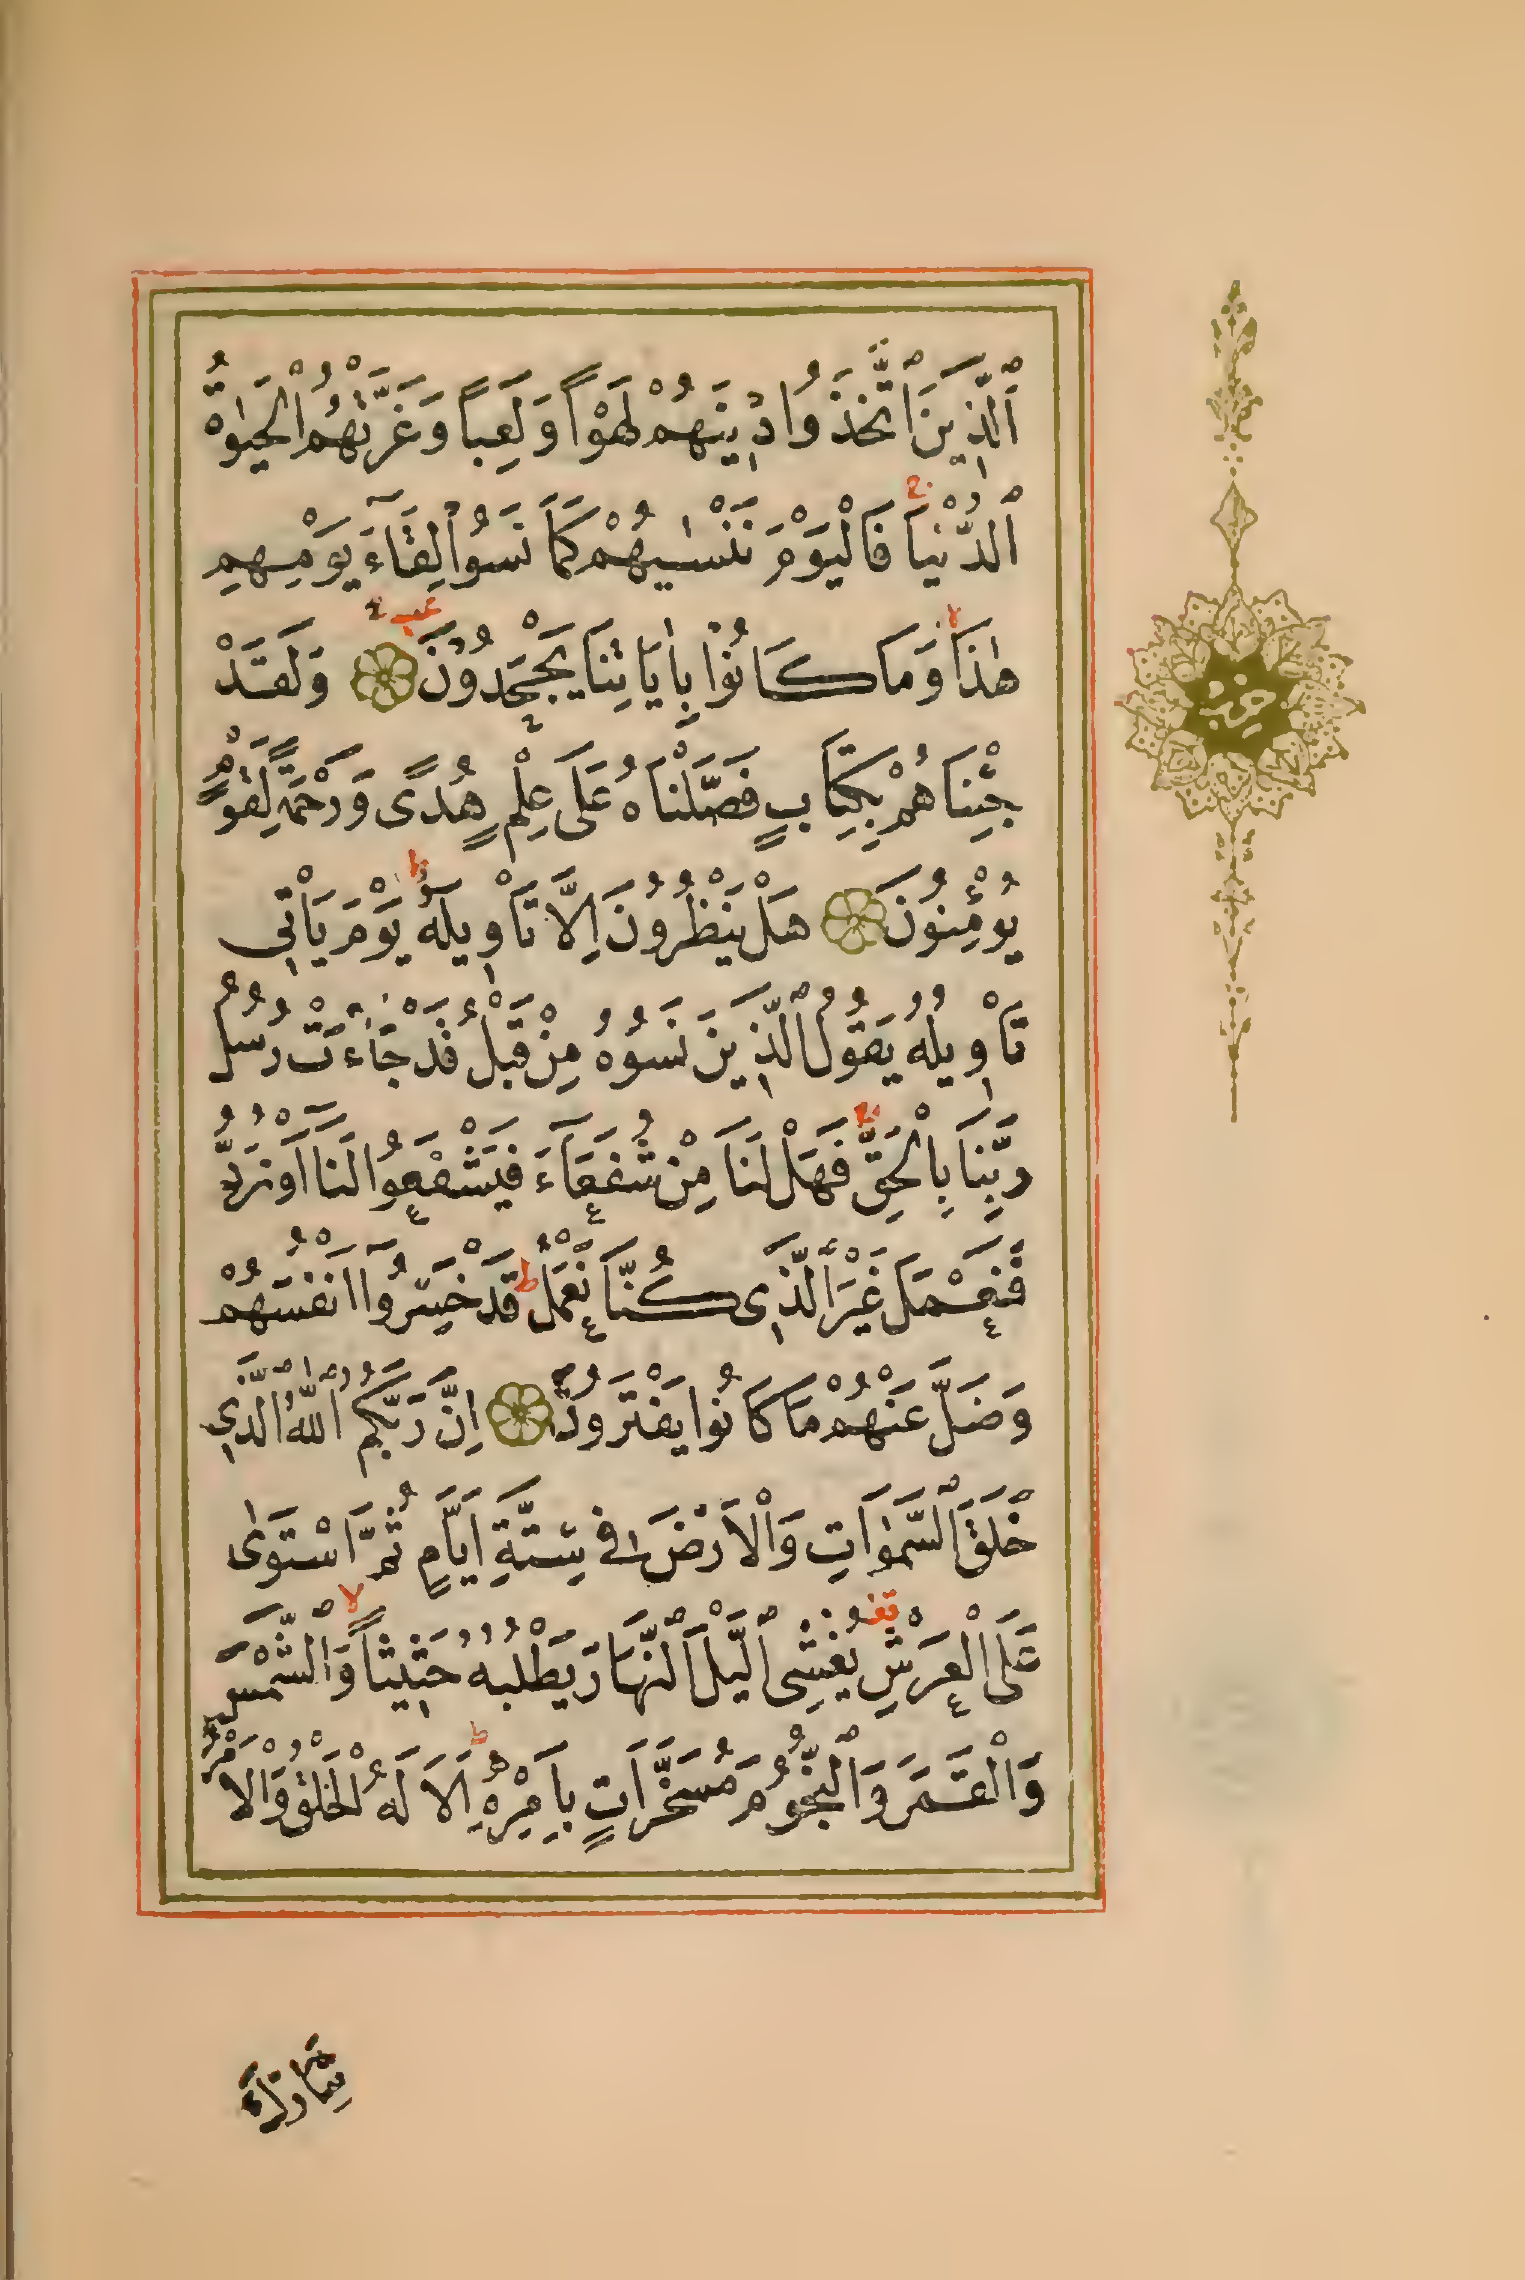 اَلَّذِينَ اتَّخَذُوا دِينَهُمْ لَهْوًا وَلَعِبًا وَغَرَّتْهُمُ الْحَيٰوةُ
الدُّنْيَا فَالْيَوْمَ نَنْسٰيهُمْ كَمَا نَسُوا لِقَآءَ يَوْمِهِمْ
هٰذَا وَمَا كَانُوا بِاٰيَاتِنَا يَجْحَدُونَ وَلَقَدْ
جِئْنَاهُمْ بِكِتَابٍ فَصَّلْنَاهُ عَلَى عِلْمٍ هُدًى وَرَحْمَةً لِقَوْمٍ
يُؤْمِنُونَ هَلْ يَنْظُرُونَ اِلَّا تَأْوِيلَهُ يَوْمَ يَأْتِي
تَأْوِيلُهُ يَقُولُ الَّذِينَ نَسُوهُ مِنْ قَبْلُ قَدْ جَآءَتْ رُسُلُ
رَبِّنَا بِالْحَقِّ فَهَلْ لَنَا مِنْ شُفَعَآءَ فَيَشْفَعُوا لَنَا اَوْ نُرَدُّ
فَنَعْمَلَ غَيْرَ الَّذِي كُنَّا نَعْمَلُ قَدْ خَسِرُوا اَنْفُسَهُمْ
وَضَلَّ عَنْهُمْ مَا كَانُوا يَفْتَرُونَ اِنَّ رَبَّكُمُ اللّٰهُ الَّذِي
خَلَقَ السَّمٰوَاتِ وَالْاَرْضَ فِي سِتَّةِ اَيَّامٍ ثُمَّ اسْتَوٰى
عَلَى الْعَرْشِ يُغْشِي الَّيْلَ النَّهَارَ يَطْلُبُهُ حَثِيثًا وَالشَّمْسَ
وَالْقَمَرَ وَالنُّجُومَ مُسَخَّرَاتٍ بِاَمْرِهِ اَلَا لَهُ الْخَلْقُ وَالْاَمْرُ